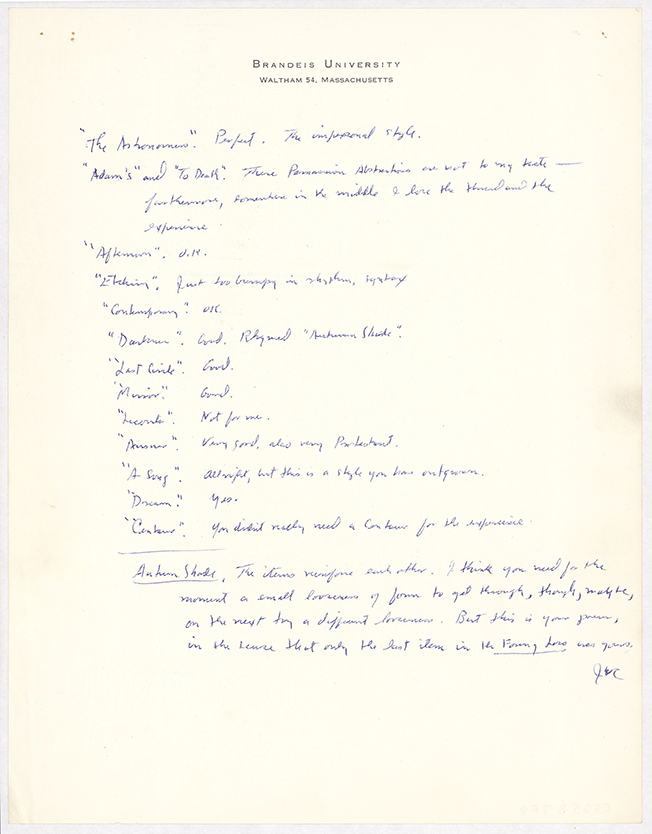 BRANDEIS UNIVERSITY
WALTHAM 54, MASSACHUSETTS
"The Astronomers". Perfect. The impersonal style.
"Adam's" and "To Death". These Abstractions are not to my taste —
furthermore, somewhere in the middle I lose the thread and the
experience.
"Afternoon". O.K.
"Etching". Just too bumpy in rhythm, syntax
"Contemporary". OK.
"Darkness". Good. Rhymed "Autumn Shade".
"Last Circle". Good.
"Mirror". Good.
Not for me.
"Answer". Very good, also very Protestant.
"A Song". Allright, but this is a style you have outgrown.
"Dream". Yes.
"Centaur". You didn't really need a Centaur for the experience.
Autumn Shade. The items reinforce each other. I think you need for the
moment a small looseness of form to get through, though, maybe,
on the next try a different looseness. But this is your poem,
in the sense that only the last item in the was yours.
JVC